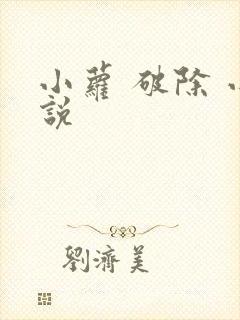 小蘿 破除
說
劉濟美